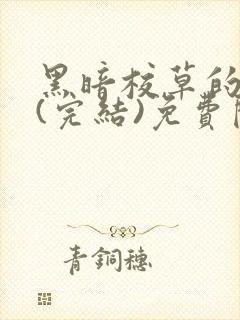 黑暗校草的
(完結)免費
青銅穗